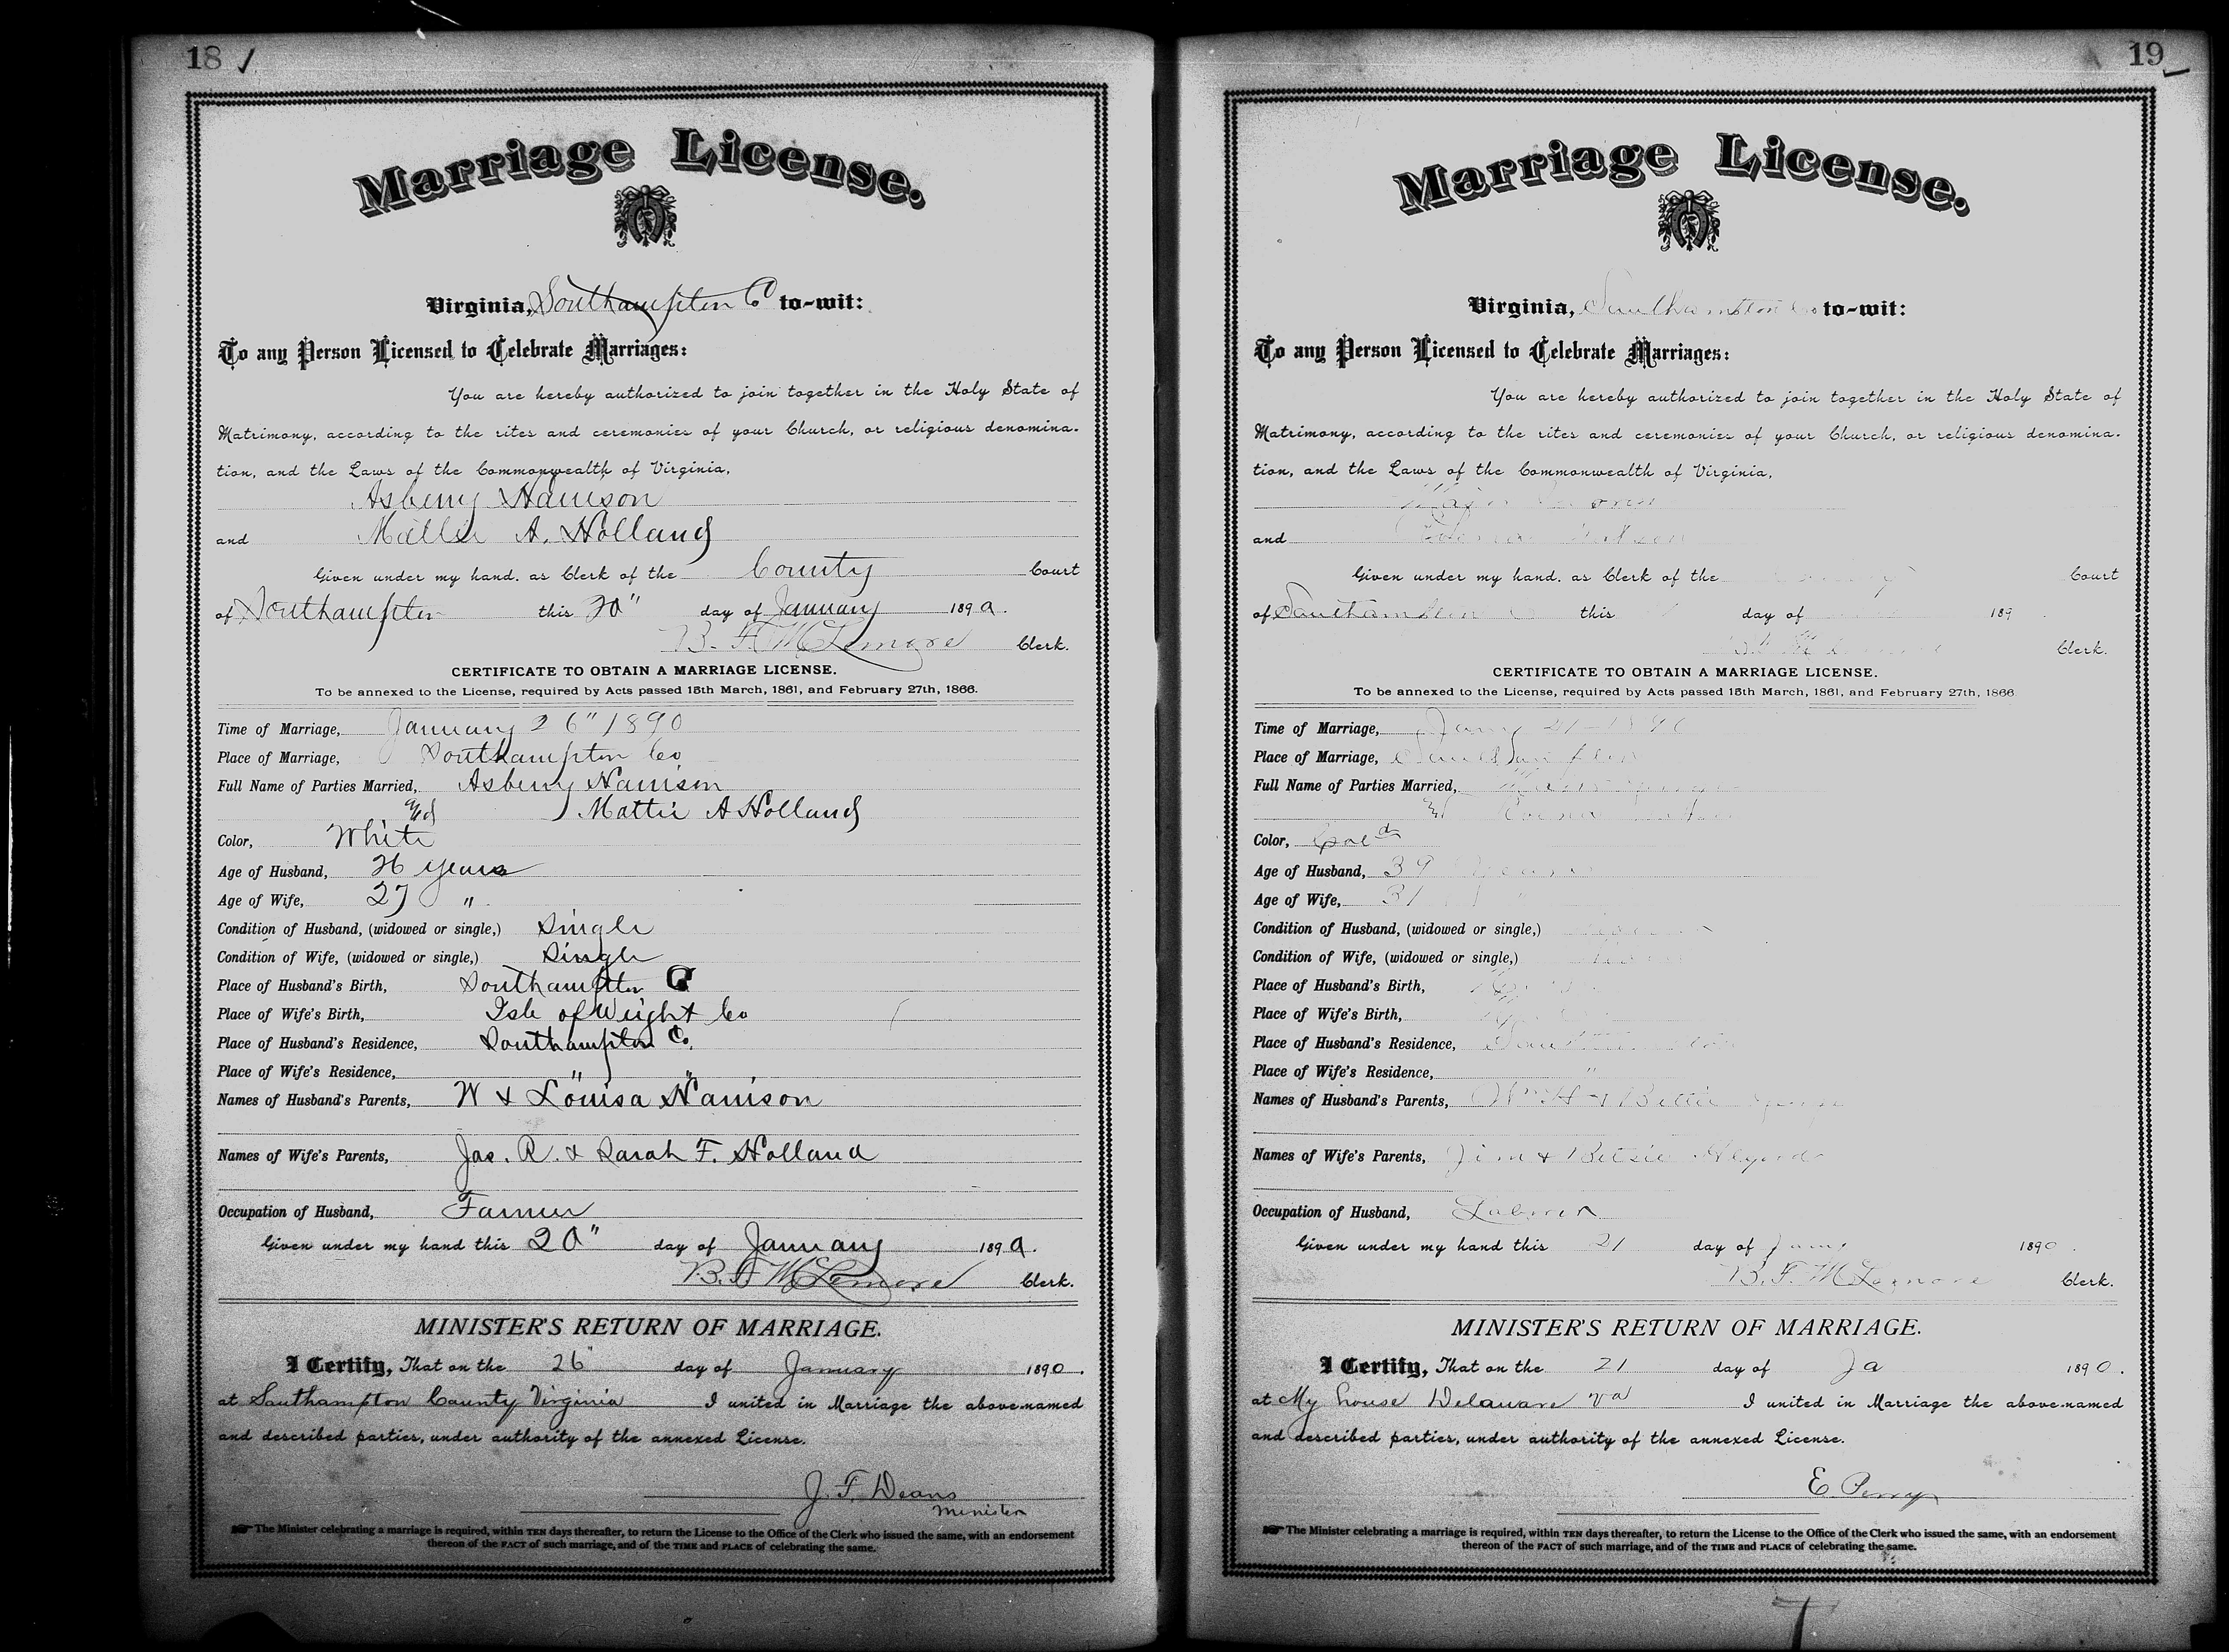 18
Marriage License.
Virginia, Southampton Co to-wit:
To any Person Licensed to Celebrate Marriages:
You are hereby authorized to join together in the Holy State of
Matrimony, according to the rites and ceremonies of your Church, or religious denomina-
tion, and the Laws of the Commonwealth of Virginia,
Asberry Harrison
and Mattie A. Holland
Given under my hand. as Clerk of the County Court
of Southampton this 20" day of January 1890.
B. F. McLemore Clerk.
CERTIFICATE TO OBTAIN A MARRIAGE LICENSE.
To be annexed to the License, required by Acts passed 15th March, 1861, and February 27th, 1866.
Time of Marriage, January 26" 1890
Place of Marriage, Southampton Co
Full Name of Parties Married, Asberry Harrison
and Mattie A Holland
Color, White
Age of Husband, 26 years
Age of Wife, 27 "
Condition of Husband, (widowed or single,) Single
Condition of Wife, (widowed or single,) Single
Place of Husband's Birth, Southampton Co
Place of Wife's Birth, Isle of Wight Co
Place of Husband's Residence, Southampton Co.
Place of Wife's Residence, " "
Names of Husband's Parents, W & Louisa Harrison
Names of Wife's Parents, Jas. R. & Sarah F. Holland
Occupation of Husband, Farmer
Given under my hand this 20" day of January 1890.
B. F. McLemore Clerk.
MINISTER'S RETURN OF MARRIAGE.
I Certify, That on the 26" day of January 1890.
at Southampton County Virginia I united in Marriage the above-named
and described parties, under authority of the annexed License.
J. F. Deans
Minister
The Minister celebrating a marriage is required, within TEN days thereafter, to return the License to the Office of the Clerk who issued the same, with an endorsement
thereon of the FACT of such marriage, and of the TIME and PLACE of celebrating the same.
19
Marriage License.
Virginia, Southampton Co to-wit:
To any Person Licensed to Celebrate Marriages:
You are hereby authorized to join together in the Holy State of
Matrimony, according to the rites and ceremonies of your Church, or religious denomina-
tion, and the Laws of the Commonwealth of Virginia,
and
Given under my hand. as Clerk of the Court
of Southampton this day of 189
Clerk.
CERTIFICATE TO OBTAIN A MARRIAGE LICENSE.
To be annexed to the License, required by Acts passed 15th March, 1861, and February 27th, 1866.
Time of Marriage, Jany 21 1890
Place of Marriage, Southampton
Full Name of Parties Married,
Color, Cold
Age of Husband, 39 years
Age of Wife, 31
Condition of Husband, (widowed or single,)
Condition of Wife, (widowed or single,)
Place of Husband's Birth,
Place of Wife's Birth,
Place of Husband's Residence, Southampton
Place of Wife's Residence, "
Names of Husband's Parents, Wm H & Bettie
Names of Wife's Parents, Jim & Betsie
Occupation of Husband, Laborer
Given under my hand this 21 day of Jany 1890.
B. F. McLemore Clerk.
MINISTER'S RETURN OF MARRIAGE.
I Certify, That on the 21 day of Ja 1890.
at My house Delaware va I united in Marriage the above-named
and described parties, under authority of the annexed License.
E. Perry
The Minister celebrating a marriage is required, within TEN days thereafter, to return the License to the Office of the Clerk who issued the same, with an endorsement
thereon of the FACT of such marriage, and of the TIME and PLACE of celebrating the same.